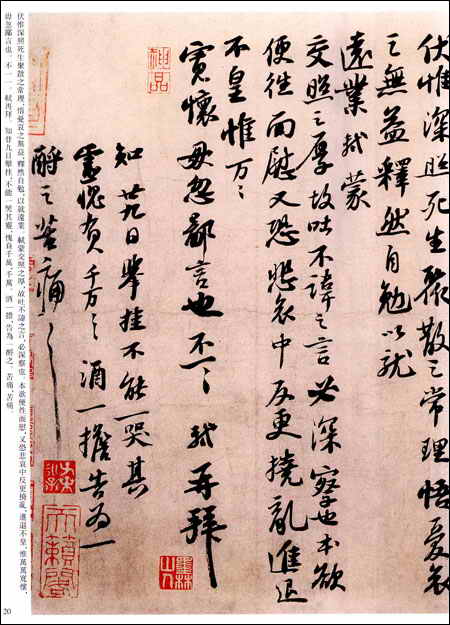 伏惟深照死生聚散之常理悟憂哀
之無益釋然自勉以就
遠業軾蒙
交照之厚故吐不諱之言必深察也本欲
便往面慰又恐悲哀中反更撓亂進退
不皇惟万〻
寬懷毋忽鄙言也不一〻軾再拜
知廿九日舉挂不能一哭其
靈愧負千万〻酒一擔告為一
酹之苦痛〻
神品
墨林山人
天籟閣
伏惟深照死生聚散之常理，悟憂哀之無益，釋然自勉，以就遠業。軾蒙交照之厚，故吐不諱之言，必深察也。本欲便往面慰，又恐悲哀中反更撓亂，進退不皇，惟萬萬寬懷，
毋忽鄙言也。不一一。軾再拜。知廿九日舉挂，不能一哭其靈，愧負千萬、千萬。酒一擔，告為一酹之。苦痛、苦痛。
20